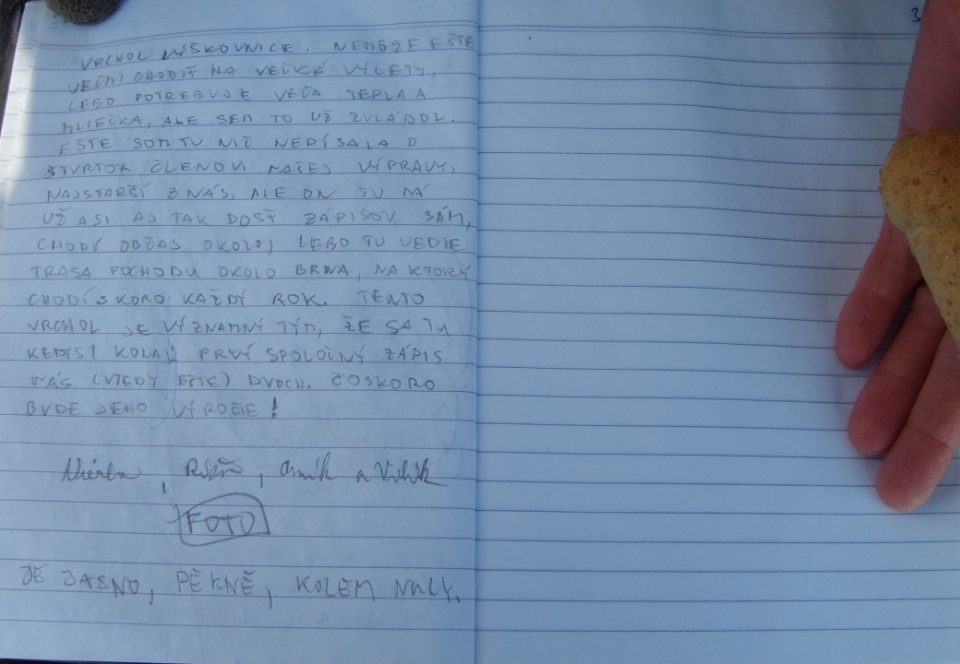 3
VRCHOL VÝŠKOVNICE. NEMÔŽE EŠTE
VEĽMI CHODIŤ NA VEĽKÉ VÝLETY,
LEBO POTREBUJE VEĽA TEPLA A
MLIEČKA, ALE SEM TO UŽ ZVLÁDOL.
EŠTE SOM TU NIČ NEPÍSALA O
ŠTVRTOK ČLENOVI NAŠEJ VÝPRAVY,
NAJSTARŠÍ Z NÁS, ALE ON TU MÁ
UŽ ASI AJ TAK DOSŤ ZÁPISOV SÁM,
CHODÍ OBČAS OKOLO, LEBO TU VEDIE
TRASA POCHODU OKOLO BRNA, NA KTORÝ
CHODÍ SKORO KAŽDÝ ROK. TENTO
VRCHOL JE VÝZNAMNÝ TÝM, ŽE SA TU
KEDYSI KONAL PRVÝ SPOLOČNÝ ZÁPIS
NÁS (VTEDY EŠTE) DVOCH. ČOSKORO
BUDE JEHO VÝROČIE!
, , a
FOTO
JE JASNO, PĚKNĚ, KOLEM NULY.